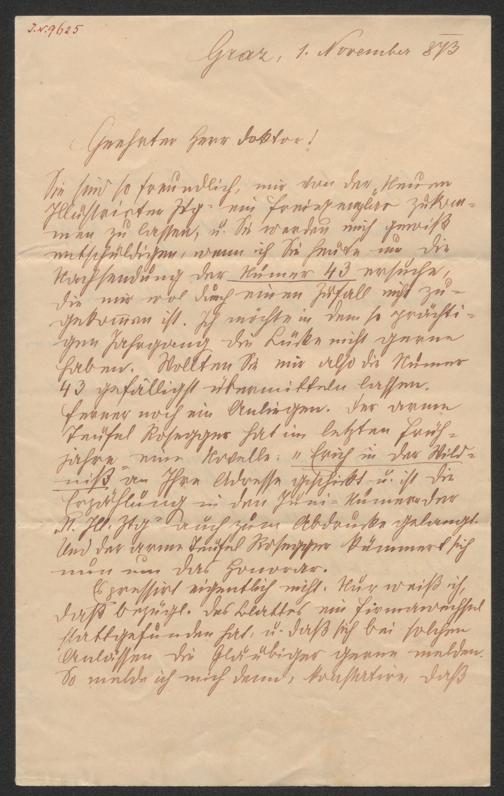 J.N. 9625
Graz, 1. November 873
Geehrter Herr Doktor!
Sie sind so freundlich, mir von der "Neuen
Illustrirten Ztg" ein Freiexemplar zukom-
men zu lassen, u. Sie werden mich gewiß
entschuldigen, wenn ich Sie heute um die
Nachsendung der Numer 43 ersuche,
die mir wol durch einen Zufall nicht zu-
gekommen ist. Ich möchte in dem so prächti-
gen Jahrgang die Lücke nicht gerne
haben. Wollten Sie mir also die Numer
43 gefälligst übermitteln lassen.
Ferner noch ein Anliegen. Der arme
Teufel Rosegger hat im letzten Früh-
jahre eine Novelle: "Erich in der Wild-
niß" an Ihre Adresse geschickt u. ist die
Erzählung in den Juni-Numern der
"N. Ill. Ztg" auch zum Abdrucke gelangt.
Und der arme Teufel Rosegger kümmert sich
nun um das Honorar.
Es pressirt eigentlich nicht. Nur weiß ich,
daß bezügl. des Blattes ein Firmawechsel
stattgefunden hat, u. daß sich bei solchen
Anlässen die Gläubiger gerne melden.
So melde ich mich denn, konstatire, daß